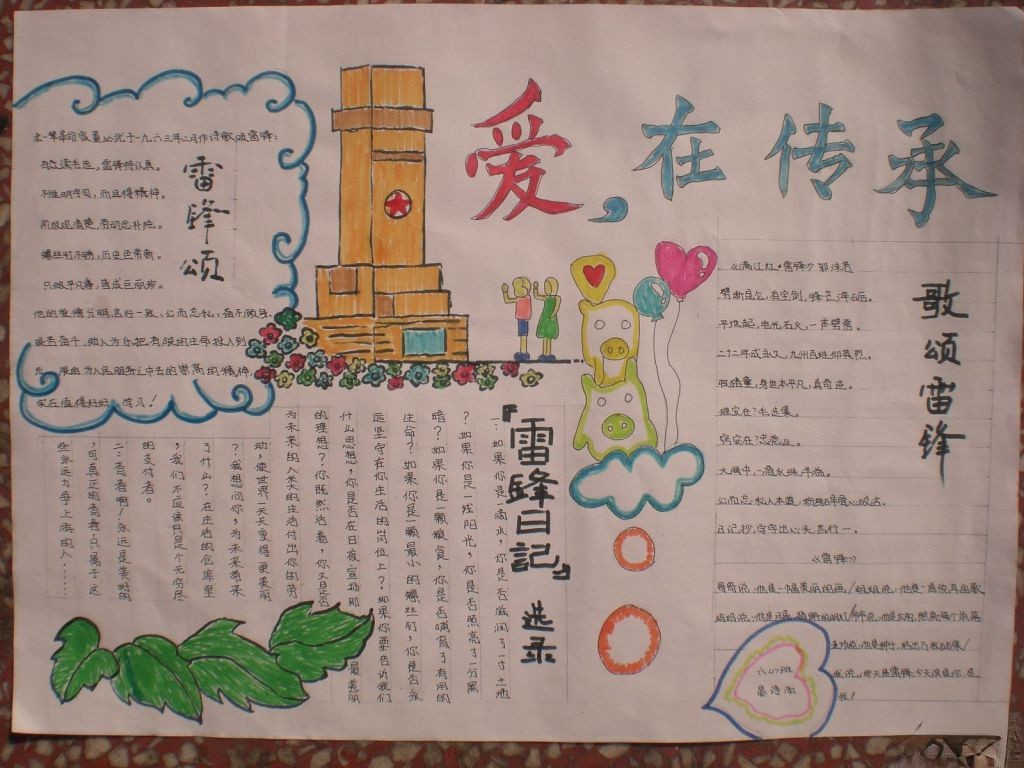 爱,在传承
雷锋颂
老一辈革命家董必武于一九六三年二月作诗歌颂雷锋:
有众读毛选,雷锋特认真。
不惟明字句,而且得精神。
阶级观清楚,劳动念朴纯。
螺丝钉不锈,历史色常新。
只做平凡事,皆成巨丽珍。
他的爱憎分明,言行一致,公而忘私,奋不顾身,
艰苦奋斗,助人为乐,把有限的生命投入到
无限的为人民服务之中去的崇高的精神,
实在值得好好学习!
『雷锋日記』选录
一:如果你是一滴水,你是否滋润了一寸土地
?如果你是一线阳光,你是否照亮了一分黑
暗?如果你是一颗粮食,你是否哺育了有用的
生命?如果你是一颗最小的螺丝钉,你是否永
远坚守在你生活的岗位上?如果你要告诉我们
什么思想,你是否在日夜宣扬那最美丽
的理想?你既然活着,你又是否
为未来的人类的生活付出你的劳
动,使世界一天天变得更美丽
?我想问你,为未来带来
了什么?在生活的仓库里
,我们不应该只是个无穷尽
的支付者。
二:青春啊!永远是美好的
,可真正的青春,只属于这
些永远力争上游的人,......
歌颂雷锋
《满江红·雷锋》郭沫若
劈断昆仑,有宝剑,
平地起,电光石火,一声劈雷。
二十二年成永久,九州百姓仰英烈。
牧猪童,身世本平凡,真奇迹。
雄实在?毛选集。
强实在?忠党业。
大海中,一滴水珠
公而忘私人本道,
日记抄,字字出心头,言行一。
《雷锋》
哥哥说:他是一幅美丽的画/姐姐说:他是一首优美的歌
六(1)班